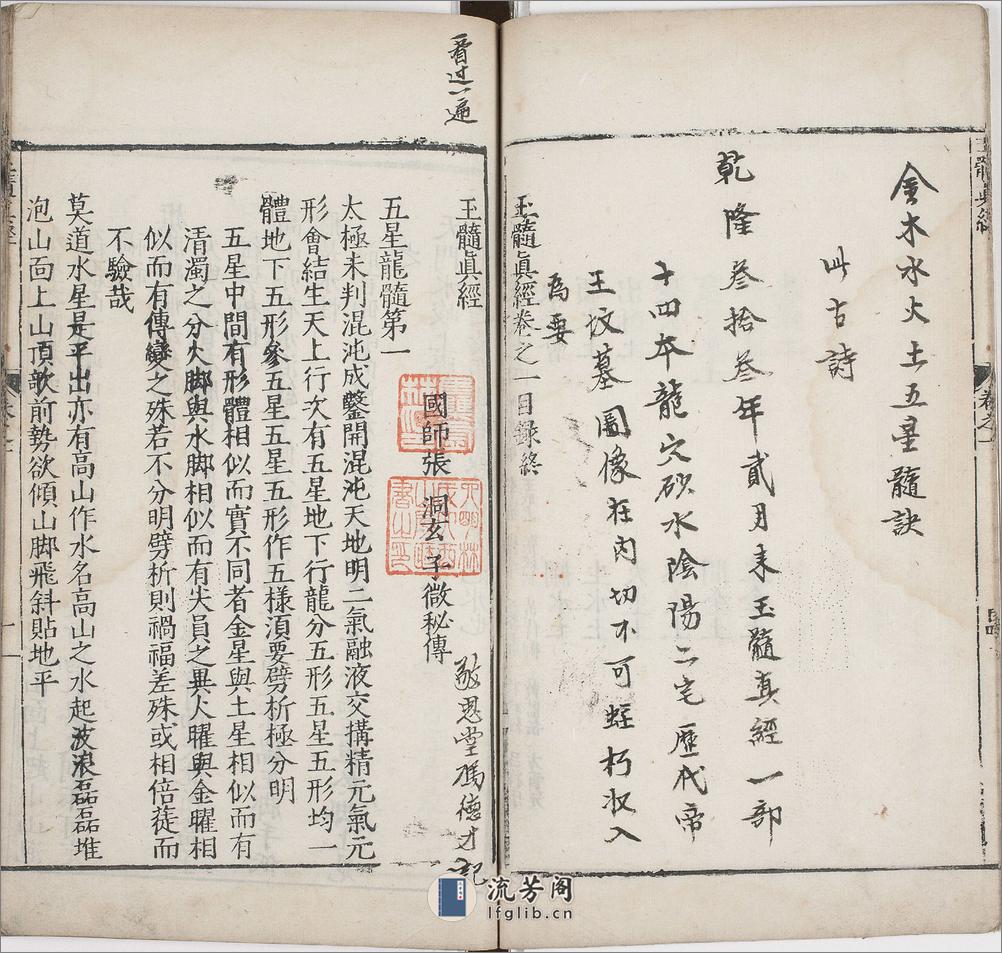 金木水火土五星髓訣
此古詩
乾隆叄拾叄年貳月来玉髓真經一部
十四本龍穴砂水陰陽二宅歷代帝
王坟墓圖像在内切不可蛀朽收入
為要
玉髓眞經卷之一目録終
看过一遍
玉髓眞經
國師張 洞玄 子微秘傳
敬恩堂馮德才記
五星龍髓第一
太極未判混沌成鑿開混沌天地明二氣融液交搆精元氣元
形會結生天上行次有五星地下行龍分五形五星五形均一
體地下五形參五星五星五形作五樣湏要劈析極分明
五星中間有形體相似而實不同者金星與土星相似而有
清濁之分火脚與水脚相似而有尖員之異火曜與金曜相
似而有傳變之殊若不分明劈析則禍福差殊或相倍蓰而
不驗哉
莫道水星是平出亦有高山作水名高山之水起波浪磊磊堆
泡山面上山頂欹前勢欲傾山脚飛斜貼地平
流芳阁
lfglib.cn